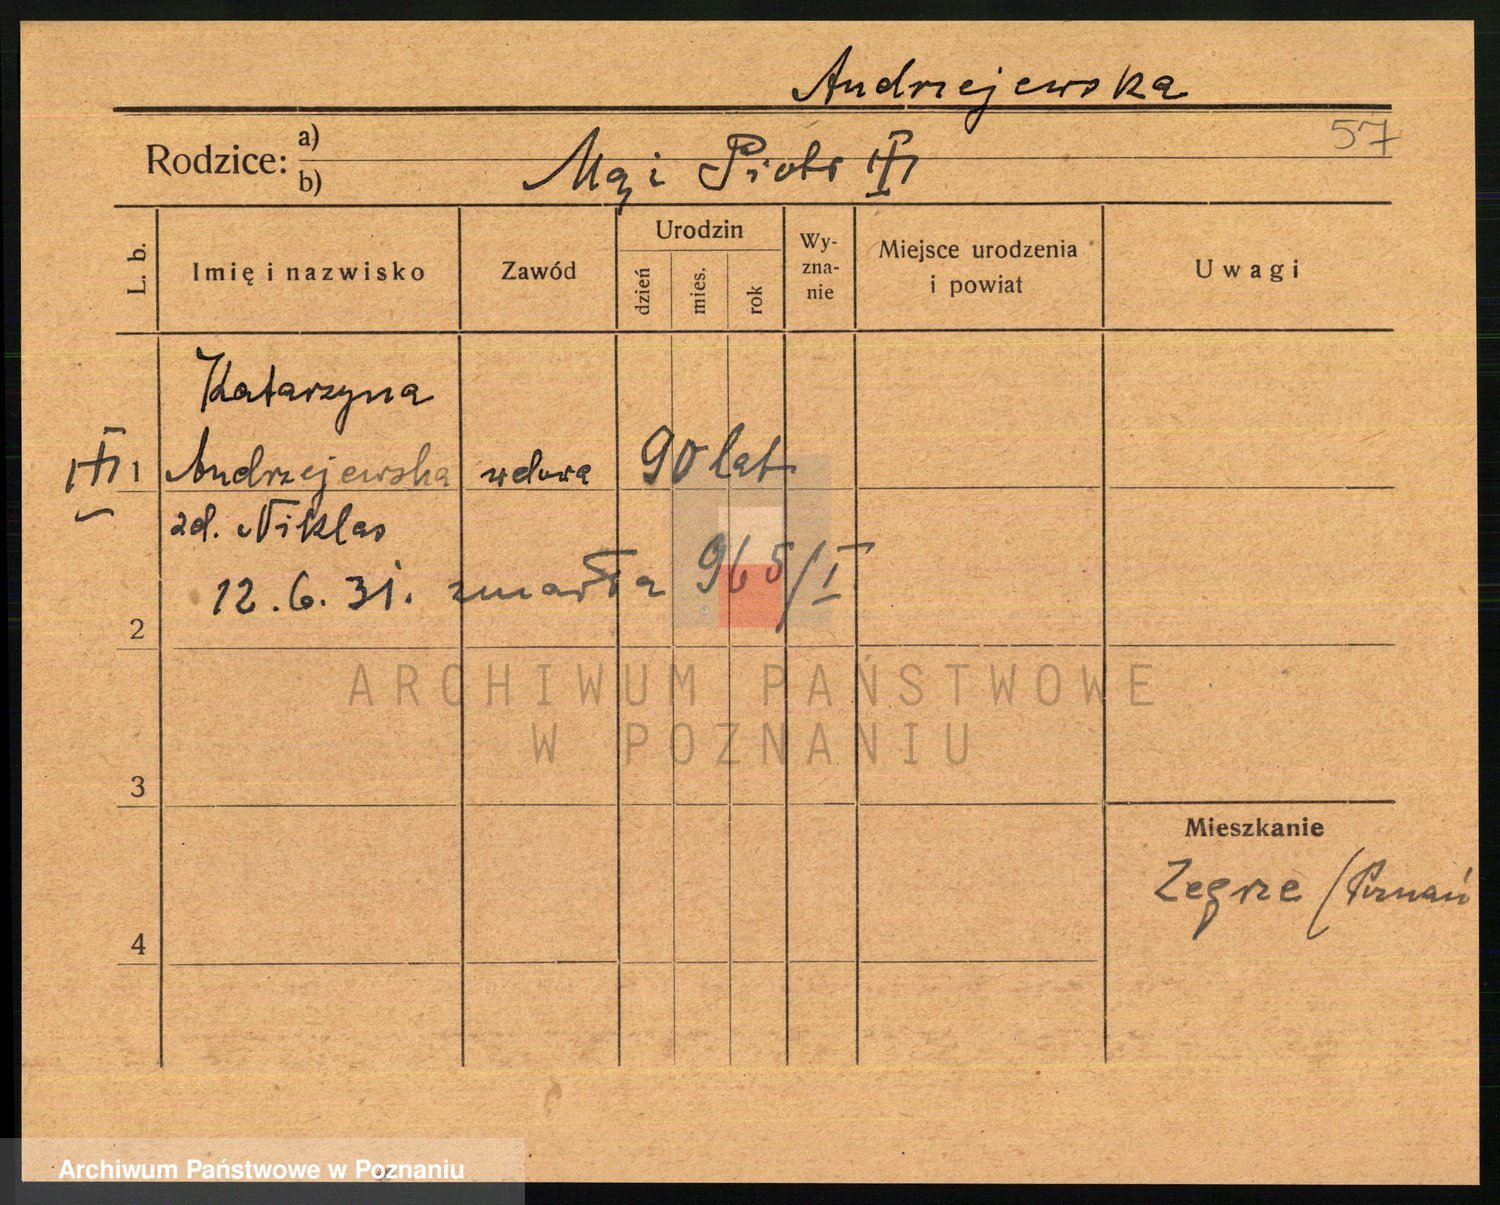 Andrzejewska
57
Rodzice: a)
b) Mąż Piotr
L. b.
Imię i nazwisko
Zawód
Urodzin
dzień
mies.
rok
Wy-
zna-
nie
Miejsce urodzenia
i powiat
Uwagi
Katarzyna
1 Andrzejewska wdowa 90 lat
zd. Niklas
12.6.31. zmarła 965/I
2
3
4
Mieszkanie
Zegrze / Poznań
ARCHIWUM PAŃSTWOWE
W POZNANIU
Archiwum Państwowe w Poznaniu